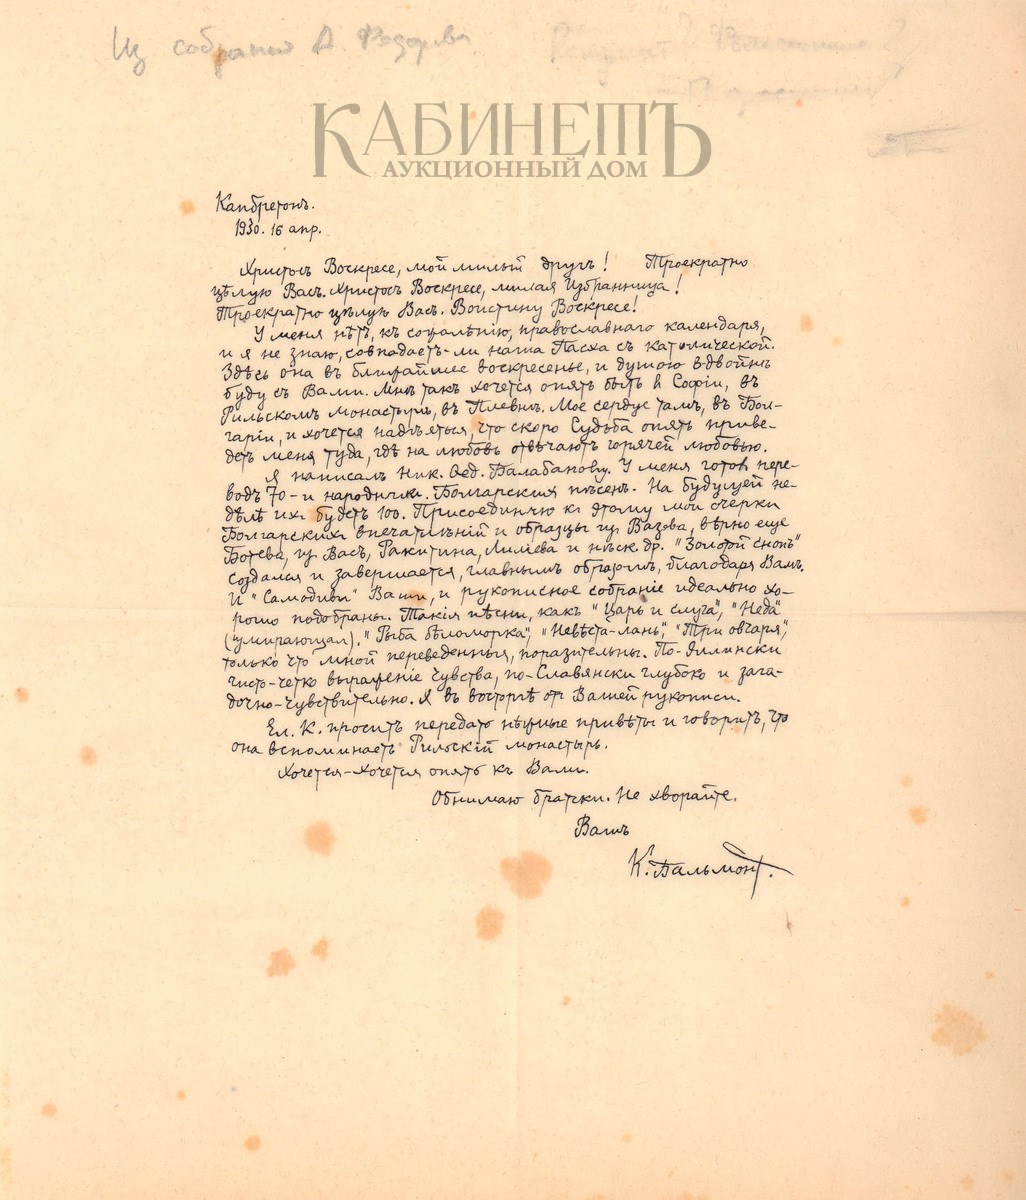 Из собрания А. Федорова
КАБИНЕТЪ
АУКЦИОННЫЙ ДОМ
Капбретонъ.
1930. 16 апр.
Христосъ Воскресе, мой милый другъ! Троекратно
цѣлую Васъ. Христосъ Воскресе, милая Избранница!
Троекратно цѣлую Васъ. Воистину Воскресе!
У меня нѣтъ, къ сожалѣнію, православнаго календаря,
и я не знаю, совпадаетъ-ли наша Пасха съ католической.
Здѣсь она въ ближайшее воскресенье, и душою вдвойнѣ
буду съ Вами. Мнѣ такъ хочется опять быть в Софіи, въ
Рильскомъ монастырѣ, въ Плевнѣ. Мое сердце тамъ, въ Бол-
гаріи, и хочется надѣяться, что скоро Судьба опять приве-
детъ меня туда, гдѣ на любовь отвѣчаютъ горячей любовью.
Я написалъ Ник. Ѳед. Балабанову. У меня готов пере-
водъ 70-и народныхъ Болгарскихъ пѣсенъ. На будущей не-
дѣлѣ ихъ будетъ 100. Присоединяю къ этому мои очерки
Болгарскихъ впечатлѣній и образцы из Вазова, вѣрно еще
Ботева, из Васъ, Ракитина, Лилiева и нѣск. др. "Золотой снопъ"
создался и завершается, главнымъ образомъ, благодаря Вамъ.
И "Самодиви" Ваши, и рукописное собраніе идеально хо-
рошо подобраны. Такія пѣсни, какъ "Царь и слуга", "Неда"
(умирающая), "Рыба бѣломорка", "Невѣста-лань", "Три овчаря",
только что мной переведенныя, поразительны. По-Эллински
чисто-четко выраженіе чувства, по-Славянски глубоко и зага-
дочно-чувствительно. Я въ восторгѣ от Вашей рукописи.
Ел. К. проситъ передать нѣжные привѣты и говоритъ, что
она вспоминаетъ Рильскій монастырь.
Хочется-хочется опять къ Вамъ.
Обнимаю братски. Не хворайте.
Вашъ
К. Бальмонт.